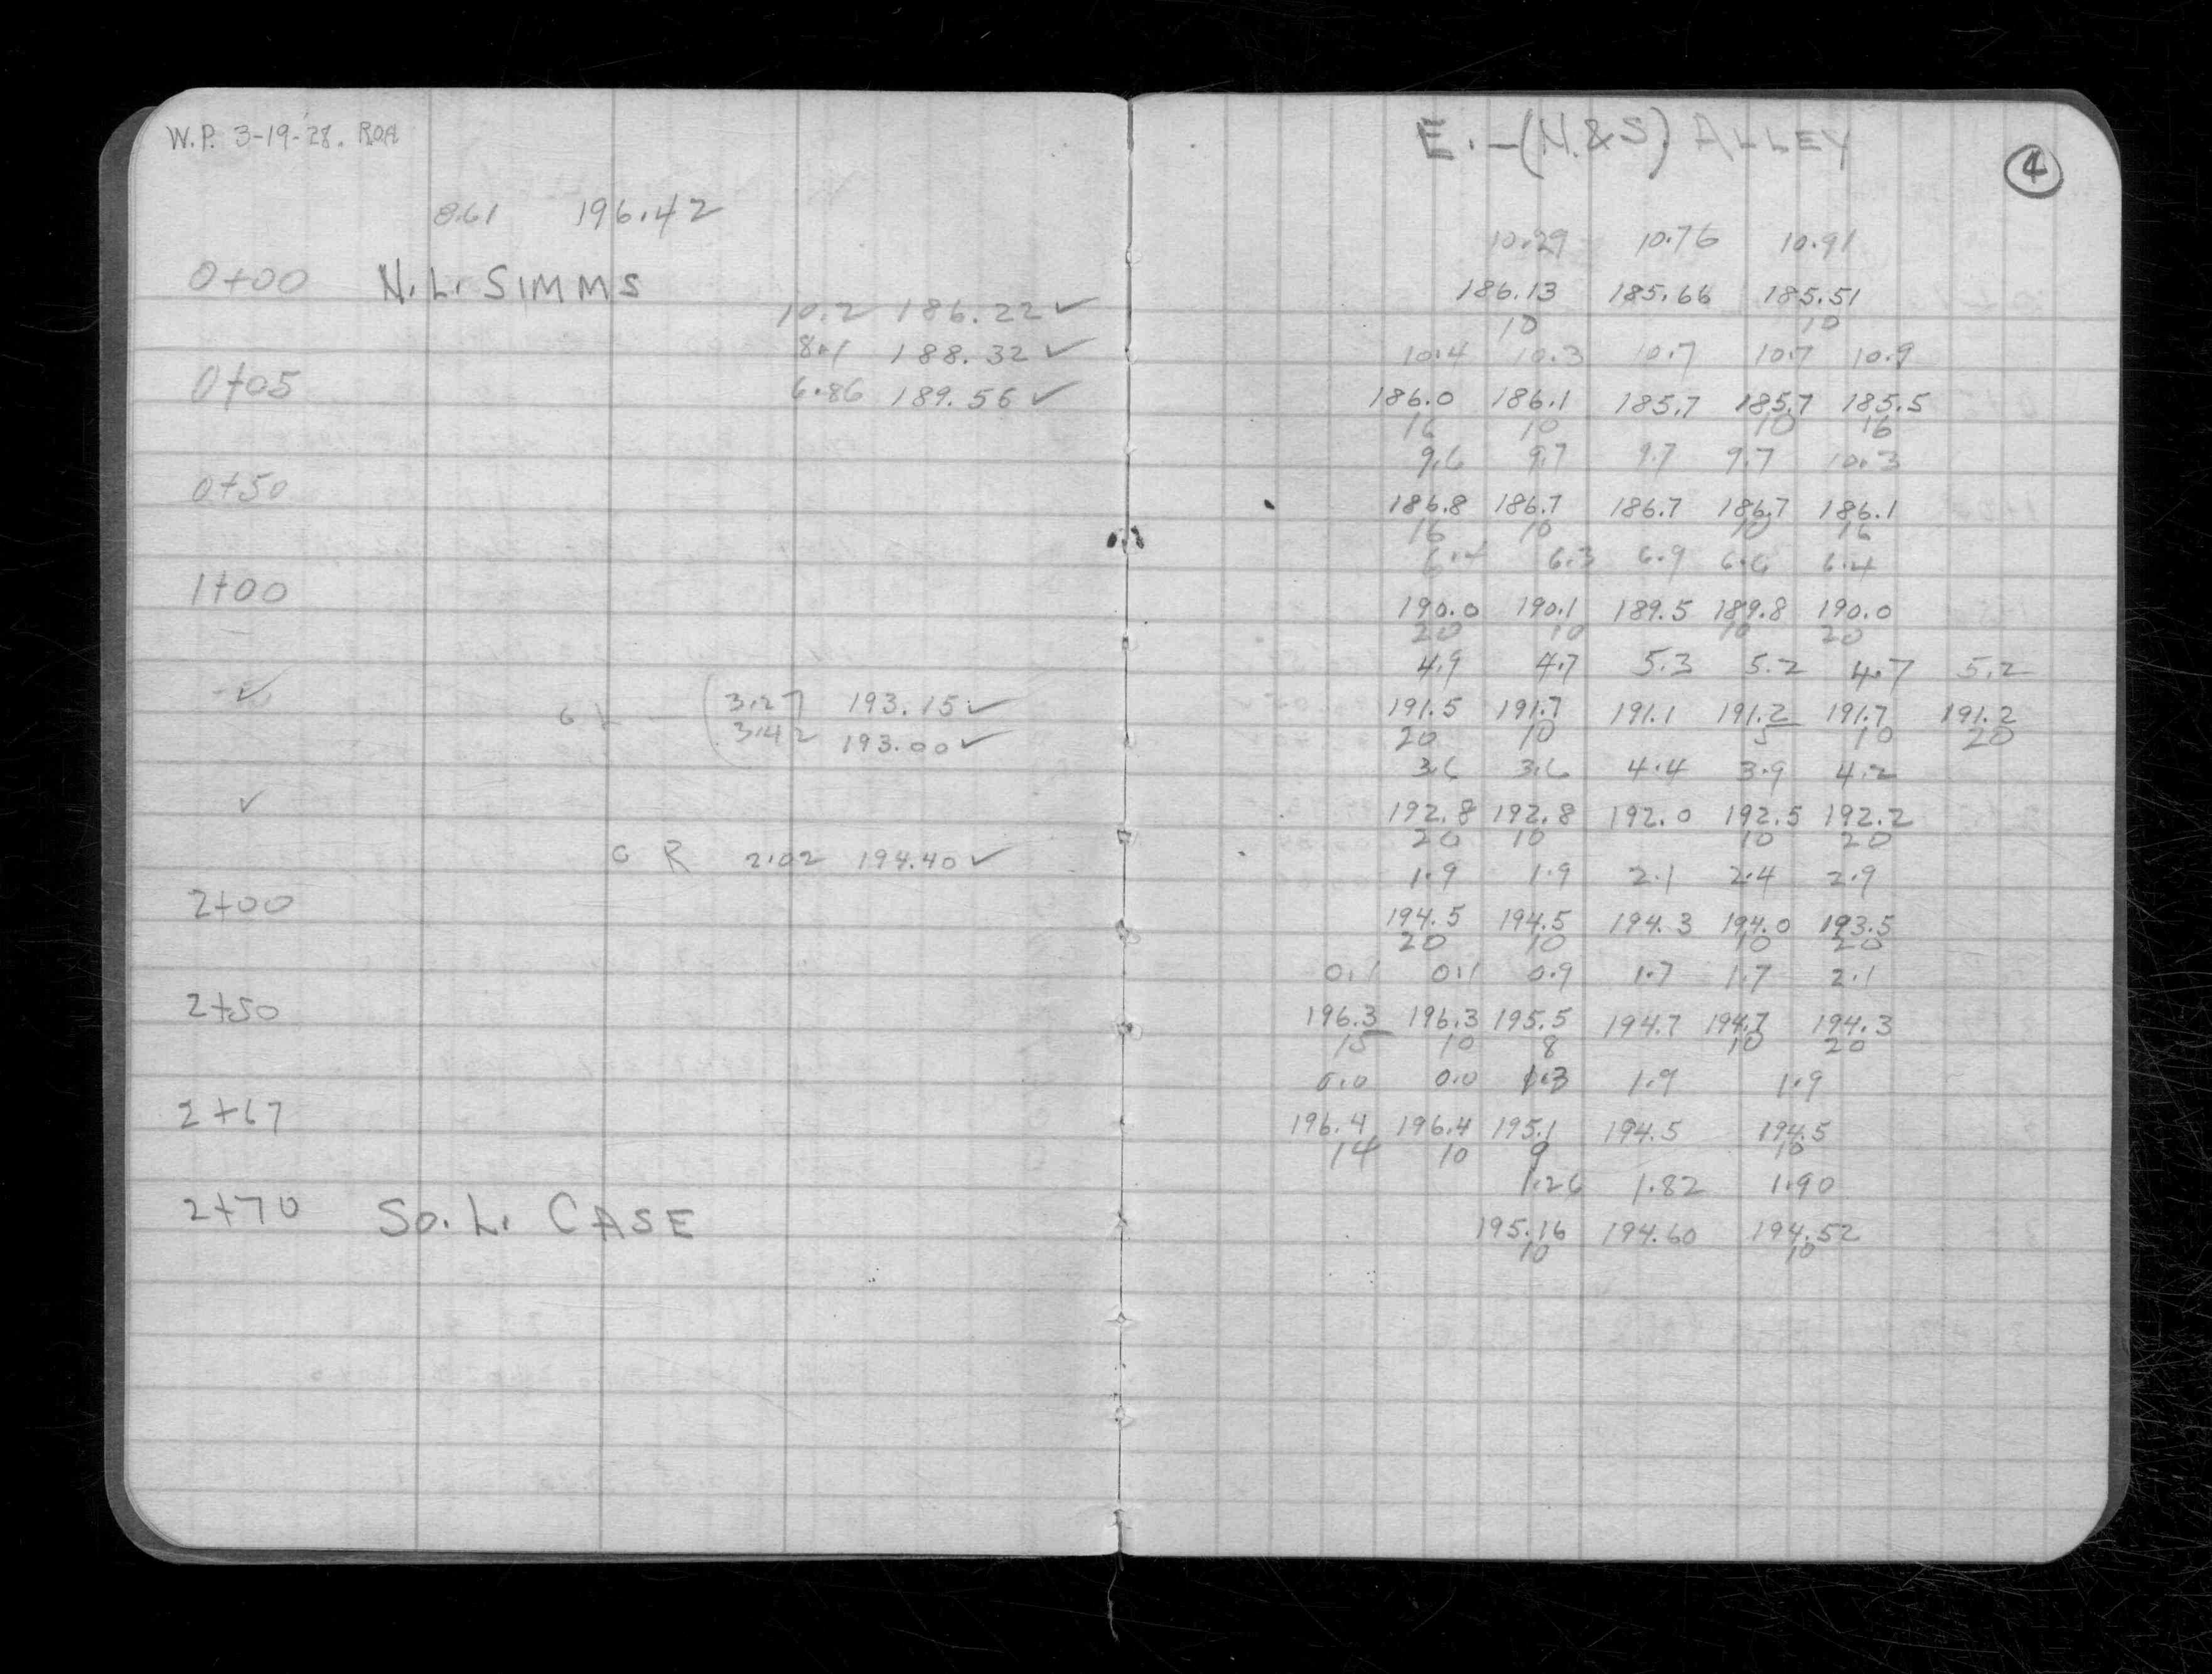 W.P. 3-19-'28. ROA
8.61 196.42
0+00 N.L. SIMMS
10.2 186.22 ✓
8.1 188.32 ✓
0+05 6.86 189.56 ✓
0+50
1+00
✓ 3.27 193.15 ✓
3.42 193.00 ✓
✓
G R 2.02 194.40 ✓
2+00
2+50
2+67
2+70 So. L. CASE
E. - (N.&S) ALLEY
4
10.29 10.76 10.91
186.13 185.66 185.51
10 10
10.4 10.3 10.7 10.7 10.9
186.0 186.1 185.7 185.7 185.5
16 10 10 16
9.6 9.7 9.7 9.7 10.3
186.8 186.7 186.7 186.7 186.1
16 10 10 16
6.4 6.3 6.9 6.6 6.4
190.0 190.1 189.5 189.8 190.0
20 10 10 20
4.9 4.7 5.3 5.2 4.7 5.2
191.5 191.7 191.1 191.2 191.7 191.2
20 10 5 10 20
3.6 3.6 4.4 3.9 4.2
192.8 192.8 192.0 192.5 192.2
20 10 10 20
1.9 1.9 2.1 2.4 2.9
194.5 194.5 194.3 194.0 193.5
20 10 10 20
0.1 0.1 0.9 1.7 1.7 2.1
196.3 196.3 195.5 194.7 194.7 194.3
15 10 8 10 20
0.0 0.0 1.3 1.9 1.9
196.4 196.4 195.1 194.5 194.5
14 10 9 10
1.26 1.82 1.90
195.16 194.60 194.52
10 10